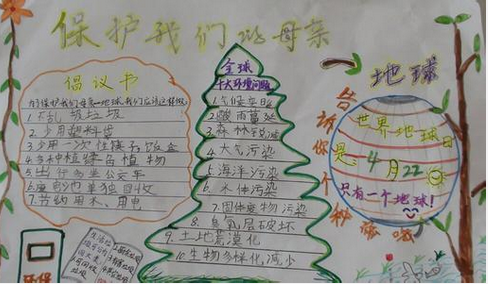 保护我们的母亲
地球
倡议书
为了保护我们母亲地球,我们应该这样做
1.不乱扔垃圾
2.少用塑料袋
3.少用一次性筷子饭盒
4.多种植绿色植物
5.出行多坐公交车
6.废电池单独回收
7.节约用水、用电
全球
十大环境问题
1.气候变暖
2.酸雨蔓延
3.森林锐减
4.大气污染
5.海洋污染
6.水体污染
7.固体废物污染
8.臭氧层破坏
9.土地荒漠化
10.生物多样化,减少
告诉你
世界地球日
是:
4月22
只有一个地球!
环保